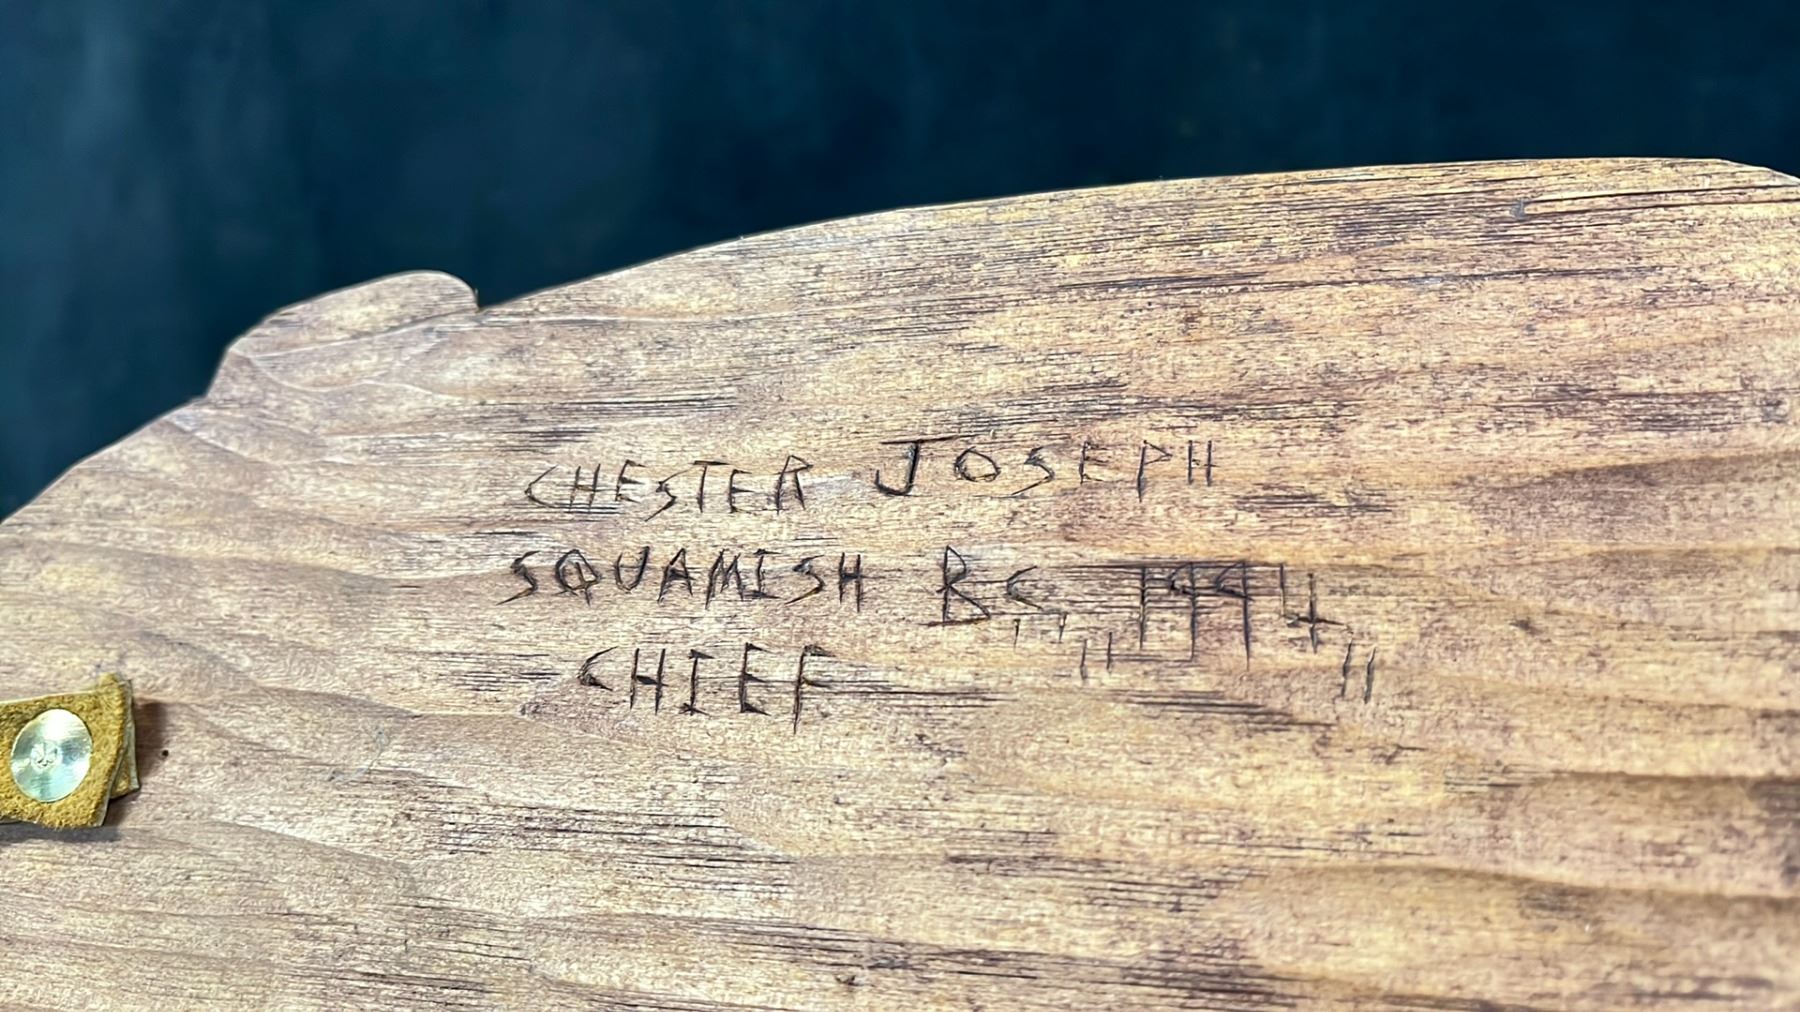 CHESTER JOSEPH
SQUAMISH BC " " 1994 "
CHIEF